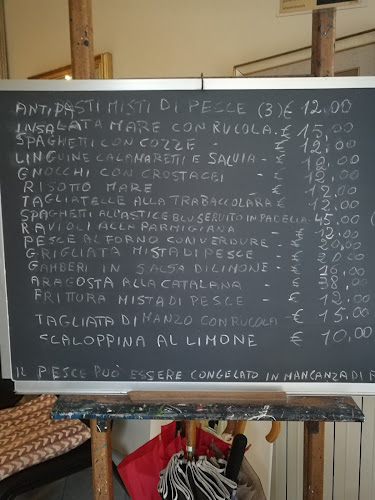 ANTIPASTI MISTI DI PESCE (3) € 12,00
INSALATA MARE CON RUCOLA. € 15,00
SPAGHETTI CON COZZE - € 12,00
LINGUINE CALAMARETTI E SALVIA - € 12,00
GNOCCHI CON CROSTACEI - € 12,00
RISOTTO MARE - € 12,00
TAGLIATELLE ALLA TRABACCOLARA € 12,00
SPAGHETTI ALL'ASTICE BLU SERVITO IN PADELLA 45,00
RAVIOLI ALLA PARMIGIANA - € 12,00
PESCE AL FORNO CON VERDURE - € 20,00
GRIGLIATA MISTA DI PESCE - € 20,00
GAMBERI IN SALSA DI LIMONE - €
ARAGOSTA ALLA CATALANA - €
FRITTURA MISTA DI PESCE - € 12,00
TAGLIATA DI MANZO CON RUCOLA - € 15,00
SCALOPPINA AL LIMONE € 10,00
IL PESCE PUÒ ESSERE CONGELATO IN MANCANZA DI F